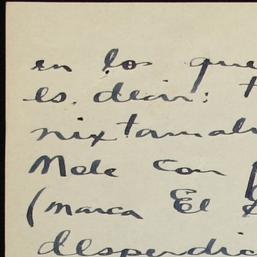 en los que
es. decir:
nixtamal
Mole con
(marca El
desperdic